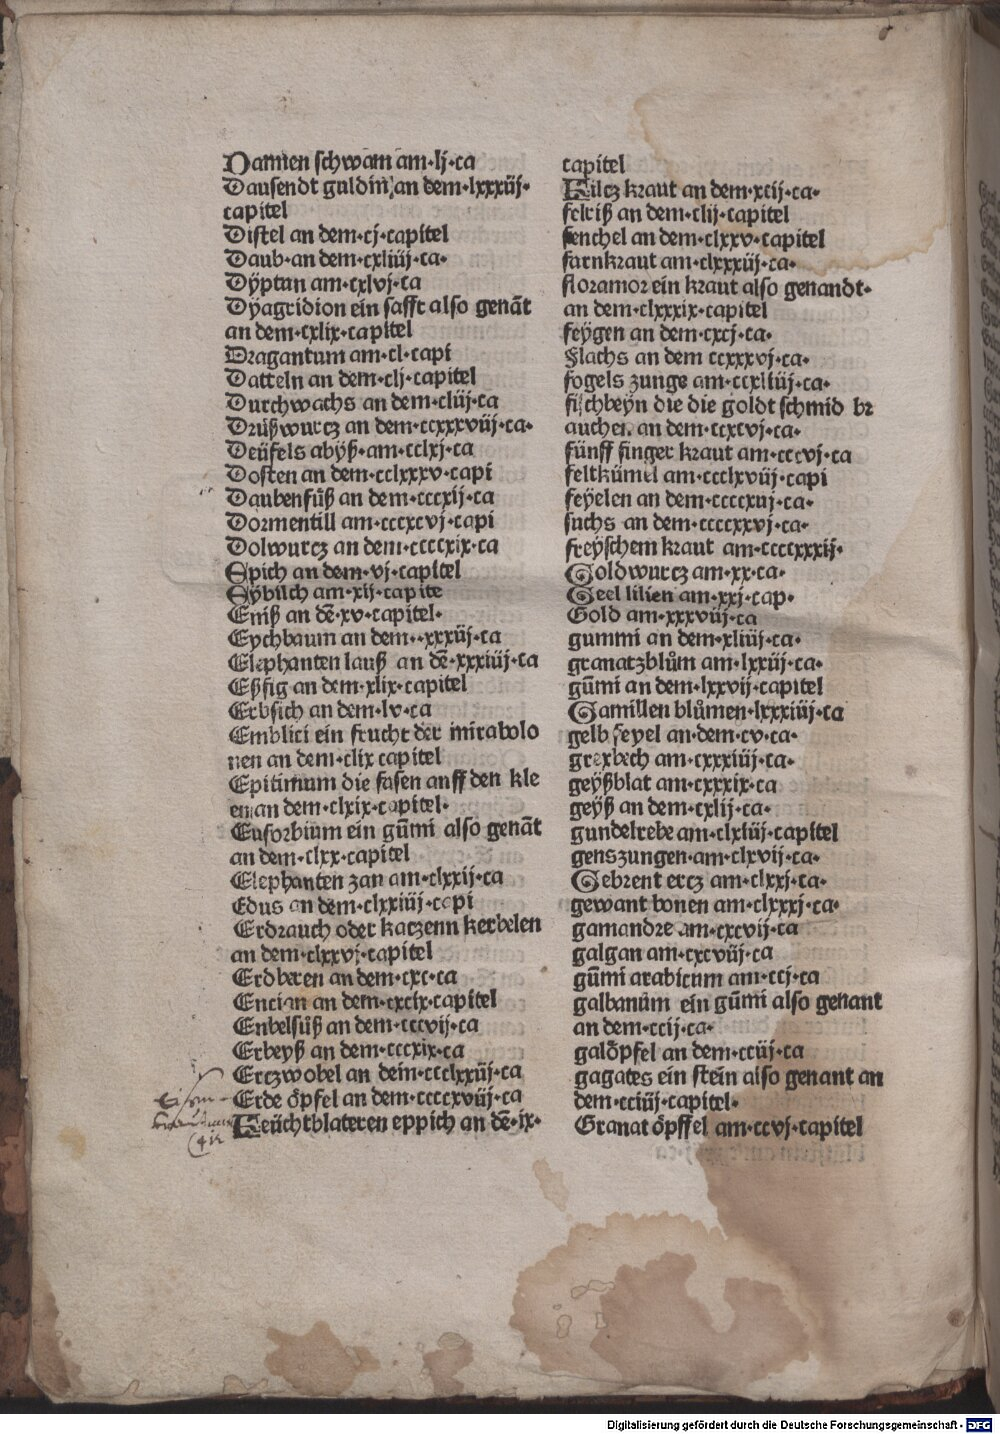 Damen schwam am·lj·ca
Dausendt guldin an dem·lxxxiij·
capitel
Distel an dem·cj·capitel
Daub·an dem·cxliiij·ca·
Dÿptan am·cxlvj·ca
Dÿagridion ein safft also genāt
an dem·cxlix·capitel
Dragantum am·cl·capi
Datteln an dem·clj·capitel
Durchwachs an dem·cliij·ca
Drüßwurcz an dem·ccxxxviij·ca·
Deüfels abÿß·am·cclxj·ca
Dosten an dem·cclxxxv·capi
Daubenfüß an dem·cccxij·ca
Dormentill am·cccxcvj·capi
Dolwurcz an dem·ccccxix·ca
Epich an dem·vj·capitel
am·xij·capite
Eniß an dē·xv·capitel·
Eychbaum an dem·xxxiij·ca
Elephanten lauß an dē·xxxiiij·ca
Eßfig an dem·xlix·capitel
Erbsich an dem·lv·ca
Emblici ein frucht der mirabolo
nen an dem·clix capitel
Epitimum die fasen auff den kle
en an dem·clxix·capitel·
Euforbium ein gūmi also genāt
an dem·clxx·capitel
Elephanten zan am·clxxij·ca
Edus an dem·clxxiiij·capi
Erdrauch oder katzenn kerbelen
an dem·clxxvj·capitel
Erdberen an dem·cxc·ca
Encian an dem·cxcix·capitel
Enbelsüß an dem·cccvij·ca
Erbeyß an dem·cccxix·ca
Erczwobel an dem·ccclxxiij·ca
Erde öpfel an dem·ccccxviij·ca
Feüchtblateren eppich an dē·ix·
capitel
Filcz kraut an dem·xcij·ca·
felriß an dem·clij·capitel
fenchel an dem·clxxv·capitel
farnkraut am·clxxxiij·ca·
floramor ein kraut also genandt·
an dem·clxxxix·capitel
feÿgen an dem·cxcj·ca·
Flachs an dem ccxxxvj·ca·
fogels zunge am·ccxliiij·ca·
fischbeÿn die die goldt schmid br
auchen an dem·ccxcvj·ca·
fünff finger kraut am·cccvj·ca
feltkümel am·ccclxviij·capi
feÿelen an dem·ccccxiij·ca·
fuchs an dem·ccccxxvj·ca·
freÿschem kraut am·ccccxxxij·
Goldwurcz am·xx·ca·
Geel lilien am·xxj·cap·
Gold am·xxxviij·ca
gummi an dem·xliiij·ca·
granatzblům am·lxxiij·ca·
gūmi an dem·lxxvij·capitel
Gamillen blůmen·lxxxiiij·ca
gelb feyel an·dem·cv·ca·
grexbech am·cxxxiiij·ca·
geÿßblat am·cxxxix·ca
geÿß an dem·cxlij·ca·
gundelrebe am·clxiiij·capitel
genszungen·am·clxvij·ca·
Gebrent ercz am·clxxj·ca·
gewant bonen am·clxxxj·ca·
gamandre am·cxcvij·ca
galgan am·cxcviij·ca
gūmi arabicum am·ccj·ca
galbanům ein gūmi also genant
an dem·ccij·ca·
galöpfel an dem·cciij·ca
gagates ein stein also genant an
dem·cciiij·capitel·
Granat öpffel am·ccvj·capitel
Digitalisierung gefördert durch die Deutsche Forschungsgemeinschaft - DFG